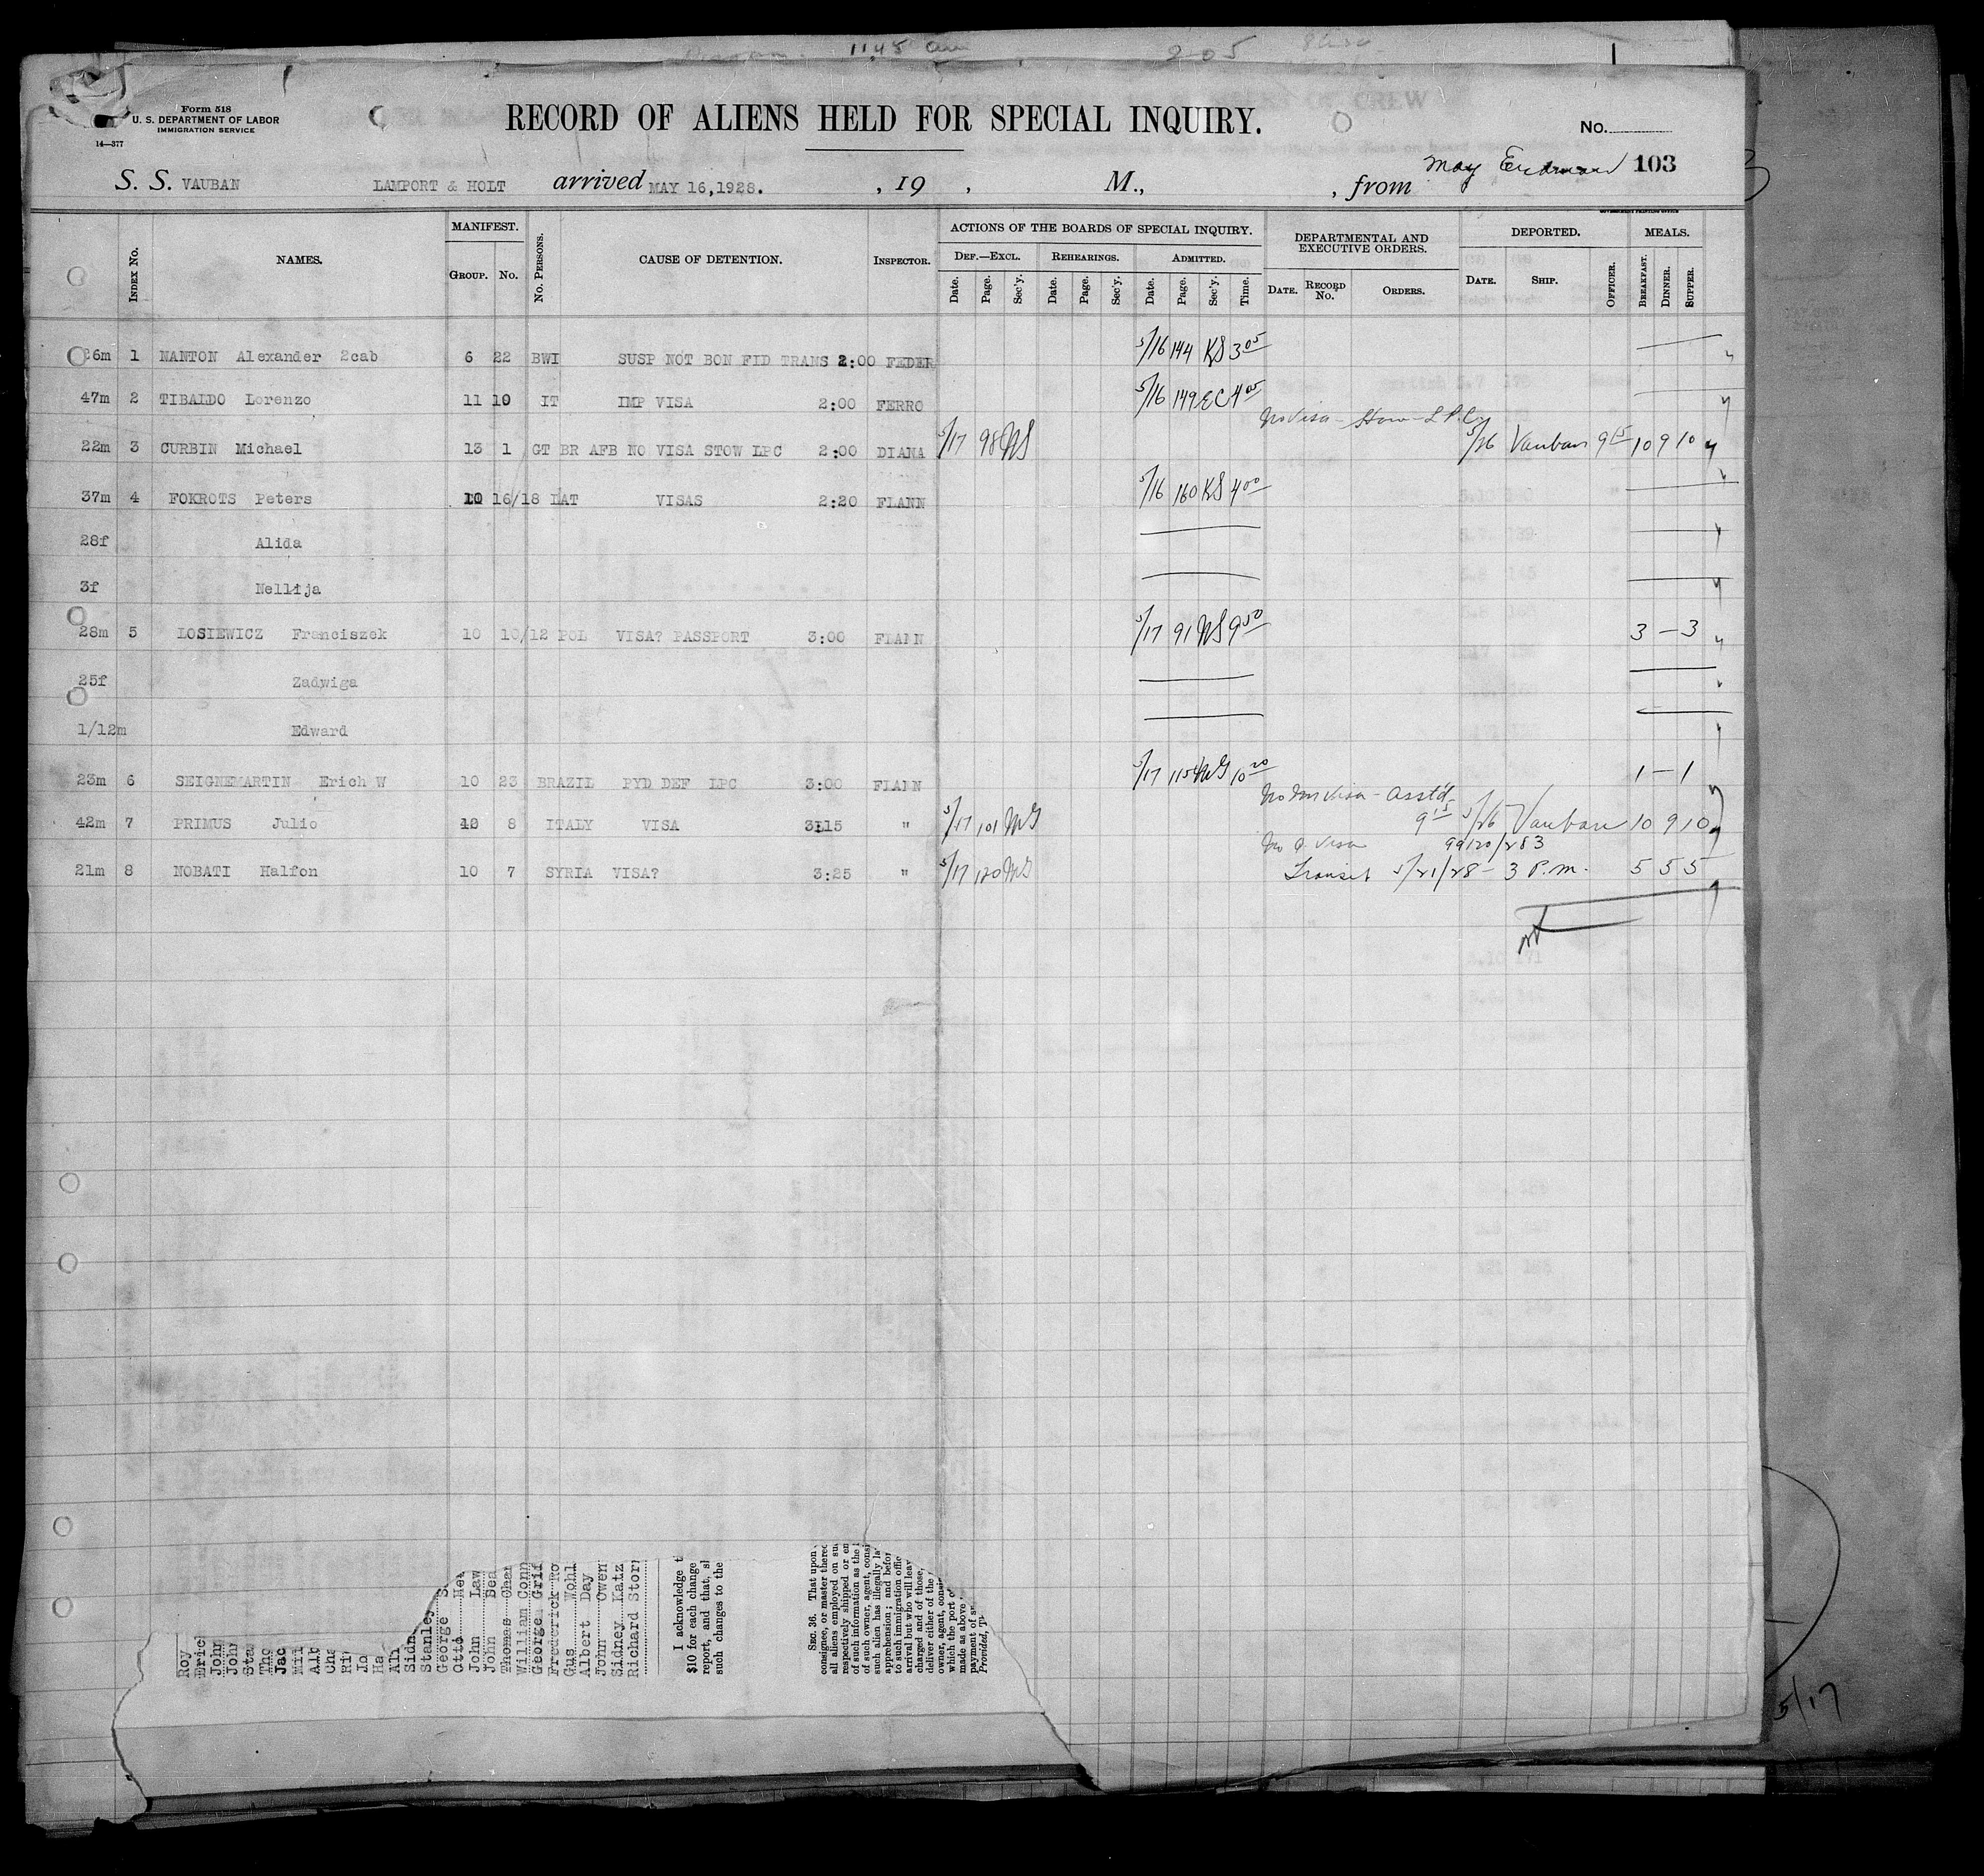 11 45 am 205
Form 518
U. S. DEPARTMENT OF LABOR
IMMIGRATION SERVICE
14—377
RECORD OF ALIENS HELD FOR SPECIAL INQUIRY.
No.
103
S. S. VAUBAN LAMPORT & HOLT arrived MAY 16,1928. , 19 , M., , from May
INDEX No. NAMES. MANIFEST. GROUP. No. No. PERSONS. CAUSE OF DETENTION. INSPECTOR. ACTIONS OF THE BOARDS OF SPECIAL INQUIRY. DEF.—EXCL. Date. Page. Sec'y. REHEARINGS. Date. Page. Sec'y. ADMITTED. Date. Page. Sec'y. Time. DEPARTMENTAL AND EXECUTIVE ORDERS. DATE. RECORD No. ORDERS. DEPORTED. DATE. SHIP. OFFICER. MEALS. BREAKFAST. DINNER. SUPPER.
26m 1 NANTON Alexander 2cab 6 22 BWI SUSP NOT BON FID TRANS 2:00 FEDER 5/16 144 KS 3 05 —
47m 2 TIBALDO Lorenzo 11 10 IT IMP VISA 2:00 FERRO 5/16 149 EC 4 05 —
No Visa - Stow - L.P.C.
22m 3 CURBIN Michael 13 1 GT BR AFB NO VISA STOW LPC 2:00 DIANA 5/17 98 NS 5/26 Vauban 9 15 10 9 10
37m 4 FOKROTS Peters 10 16/18 LAT VISAS 2:20 FLANN 5/16 160 KS 4 00 —
28f Alida — —
3f Nellija — —
28m 5 LOSIEWICZ Franciszek 10 10/12 POL VISA? PASSPORT 3:00 FLANN 5/17 91 NS 9 50 3 — 3
25f Zadwiga — —
1/12m Edward — —
23m 6 SEIGNEMARTIN Erich W 10 23 BRAZIL PYD DEF LPC 3:00 FLANN 5/17 115 NS 10 20 1 — 1
No Imm Visa - Asst'd
42m 7 PRIMUS Julio 10 8 ITALY VISA 3:15 " 5/17 101 NS 9 15 5/26 Vauban 10 9 10
No Q. Visa 99120/283
21m 8 NOBATI Halfon 10 7 SYRIA VISA? 3:25 " 5/17 120 NS Transit 5/21/28 - 3 P.m. 5 5 5
Roy
Erich
John
John
Sta
Tho
Jac
Mil
Alb
Cha
Jo
Ha
Sidn
Stanley
George
Otto
John Law
John Dea
Thomas Char
William Conn
George Grif
Frederick Ro
Gus Wohl
Albert Day
John Owen
Sidney Katz
Richard Stor
I acknowledge t
$10 for each change
report, and that, s
such changes to the
SEC. 36. That upon
consignee, or master thereo
all aliens employed on su
respectively shipped or en
of such information as the
of such owner, agent, consi
such alien has illegally la
apprehension; and befor
to such immigration offic
arrival but who will leav
charged and of those,
deliver either of the
owner, agent, cons
which the port o
made as above
payment of s
Provided, T
5/17